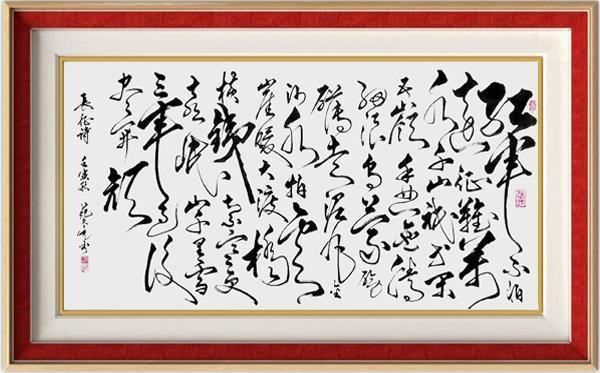 红军不怕
远征难万
水千山只等闲
五嶺逶迤腾
细浪乌蒙磅
礴走泥丸金
沙水拍云
崖暖大渡桥
横铁索寒更
喜岷山千里雪
三军过后
尽开颜
長征诗 壬寅秋